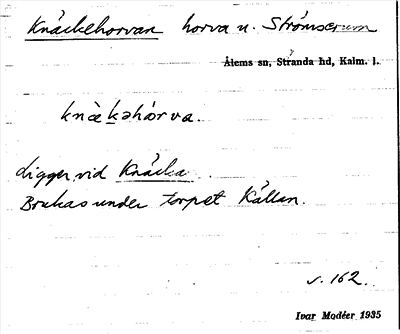 Knäckehorvan horva u. Strömserum
Ålems sn, Stranda hd, Kalm. l.
knæ̀kəhórva.
Ligger vid Knäcka.
Brukas under torpet Källan.
s. 162.
Ivar Modéer 1935